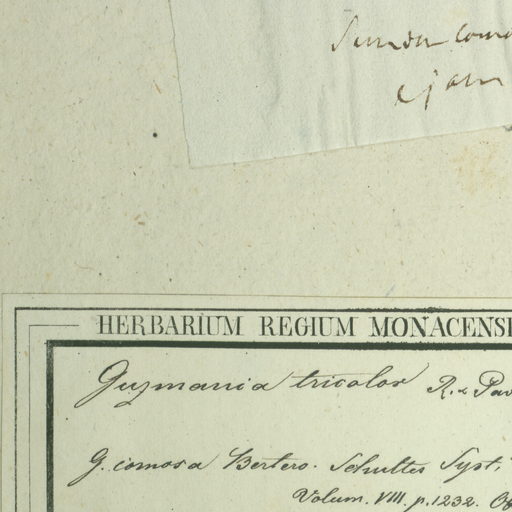 HERBARIUM REGIUM MONACENSE
Guzmania tricolor R. & Pav
G. comosa Bertero. Schultes Syst.
Volum. VIII. p. 1232.